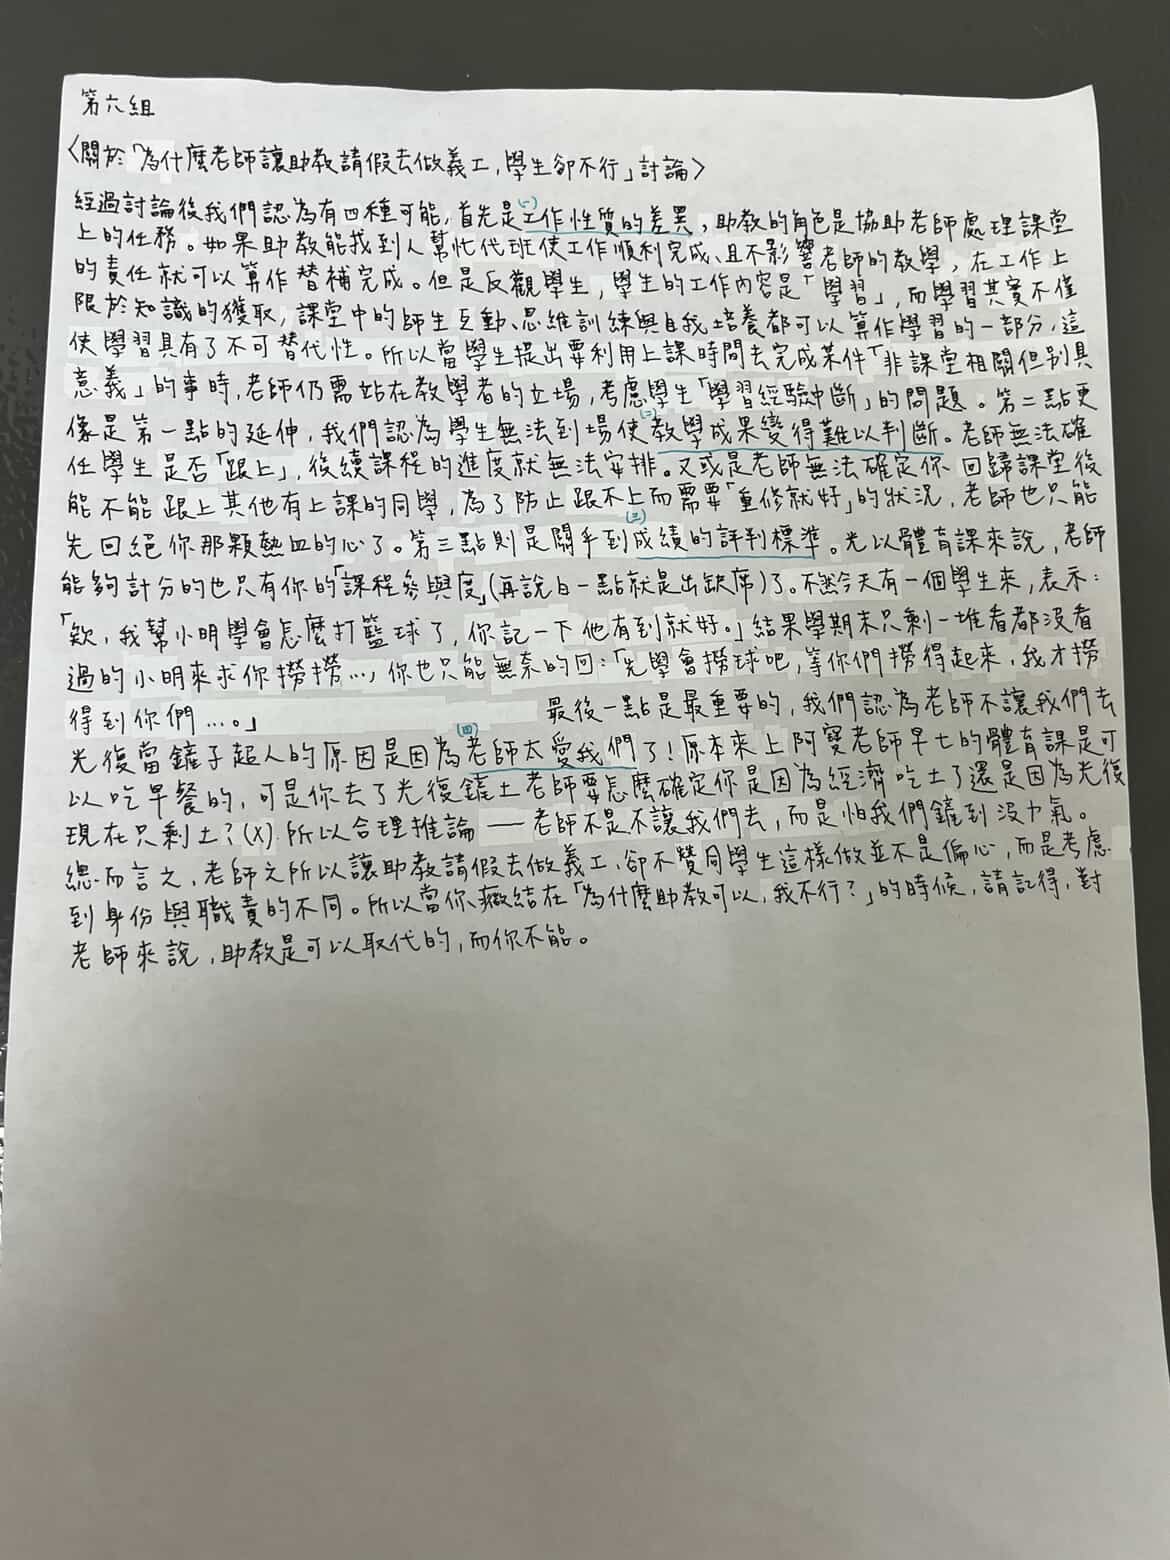 第六組
〈關於「為什麼老師讓助教請假去做義工，學生卻不行」討論〉
經過討論後我們認為有四種可能，首先是(一)工作性質的差異，助教的角色是協助老師處理課堂
上的任務。如果助教能找到人幫忙代班使工作順利完成、且不影響老師的教學，在工作上
的責任就可以算作替補完成。但是反觀學生，學生的工作內容是「學習」，而學習其實不僅
限於知識的獲取，課堂中的師生互動、思維訓練與自我培養都可以算作學習的一部分，這
使學習具有了不可替代性。所以當學生提出要利用上課時間去完成某件「非課堂相關但別具
意義」的事時，老師仍需站在教學者的立場，考慮學生「學習經驗中斷」的問題。第二點更
像是第一點的延伸，我們認為學生無法到場使(二)教學成果變得難以判斷。老師無法確
任學生是否「跟上」，後續課程的進度就無法安排。又或是老師無法確定你 回歸課堂後
能不能跟上其他有上課的同學，為了防止跟不上而需要「重修就好」的狀況，老師也只能
先回絕你那顆熱血的心了。第三點則是關乎到(三)成績的評判標準。光以體育課來說，老師
能夠計分的也只有你的「課程參與度」(再說白一點就是出缺席)了。不然今天有一個學生來，表示：
「欸，我幫小明學會怎麼打籃球了，你記一下他有到就好。」結果學期末只剩一堆看都沒看
過的小明來求你撈撈…，你也只能無奈的回：「先學會撈球吧，等你們撈得起來，我才撈
得到你們…。」 最後一點是最重要的，我們認為老師不讓我們去
光復當鏟子超人的原因是因為(四)老師太愛我們了！原本來上阿寶老師早七的體育課是可
以吃早餐的，可是你去了光復鏟土老師要怎麼確定你是因為經濟吃土了還是因為光復
現在只剩土？(X) 所以合理推論——老師不是不讓我們去，而是怕我們鏟到沒力氣。
總而言之，老師之所以讓助教請假去做義工，卻不贊同學生這樣做並不是偏心，而是考慮
到身份與職責的不同。所以當你癥結在「為什麼助教可以，我不行？」的時候，請記得，對
老師來說，助教是可以取代的，而你不能。